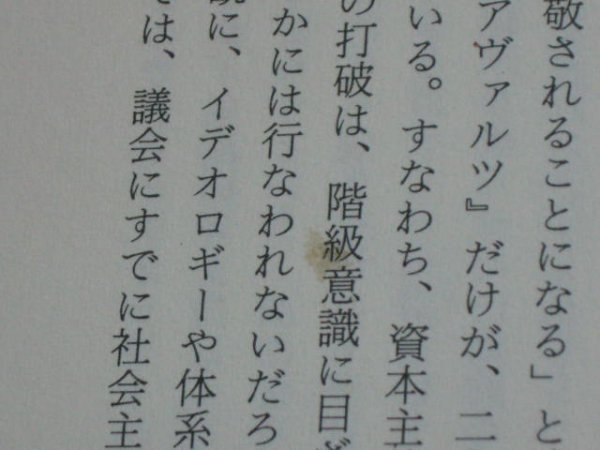 敬されることになる」と
アヴァルツ』だけが、二
いる。すなわち、資本主
の打破は、階級意識に目
かには行なわれないだろ
に、イデオロギーや体系
は、議会にすでに社会主